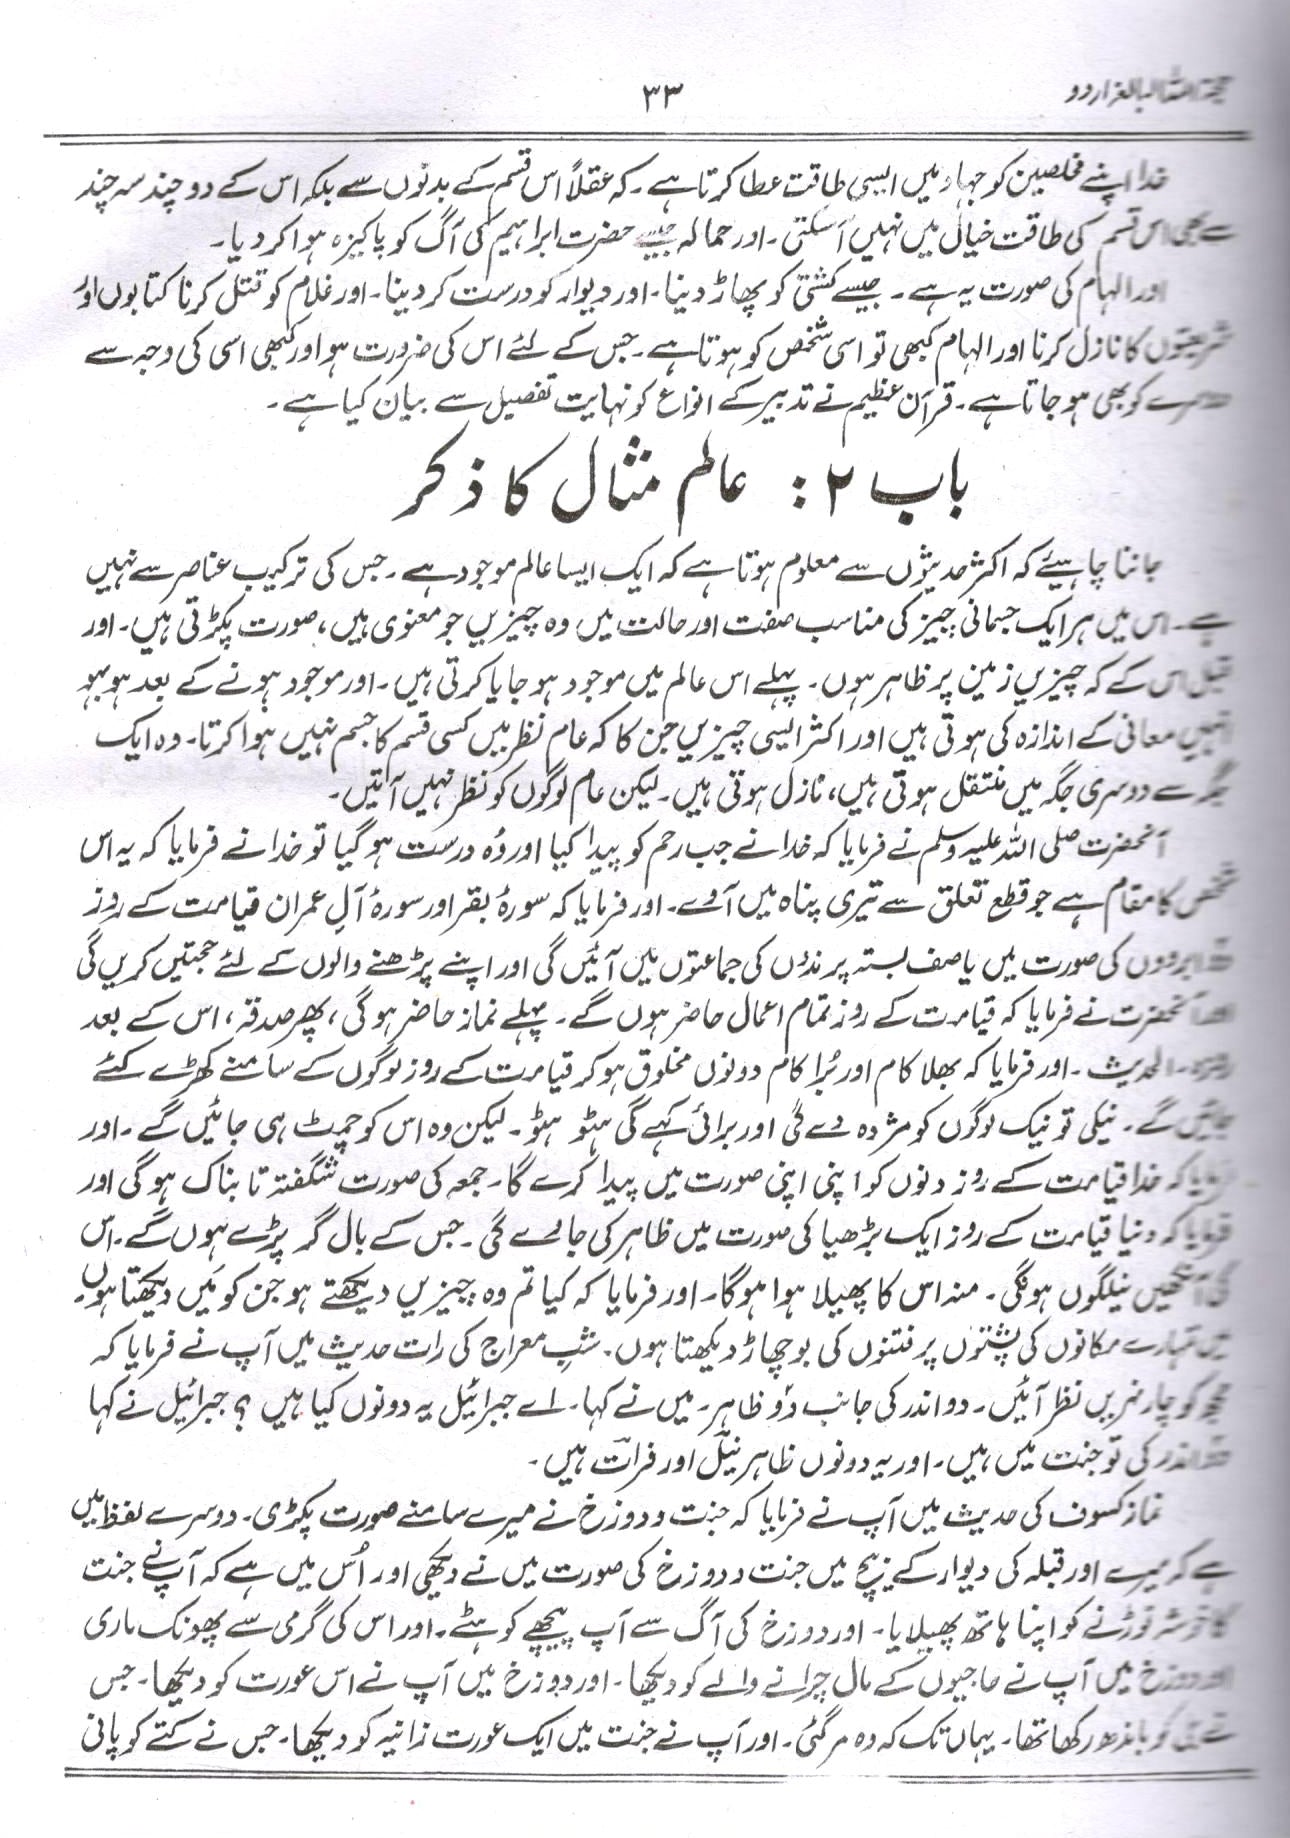 حجۃ اللہ البالغہ اردو
۳۳
خدا اپنے مخلصین کو جہاد میں ایسی طاقت عطا کرتا ہے۔ کہ عقلاً اس قسم کے بدنوں سے بلکہ اس کے دو چند سہ چند
سے بھی اس قسم کی طاقت خیال میں نہیں آ سکتی۔ اور حمالہ جیسے حضرت ابراہیم کی آگ کو پاکیزہ ہوا کر دیا۔
اور الہام کی صورت یہ ہے۔ جیسے کشتی کو پھاڑ دینا۔ اور دیوار کو درست کر دینا۔ اور غلام کو قتل کرنا کتابوں اور
شریعتوں کا نازل کرنا اور الہام کبھی تو اسی شخص کو ہوتا ہے۔ جس کے لئے اس کی ضرورت ہو اور کبھی اسی کی وجہ سے
دوسرے کو بھی ہو جاتا ہے۔ قرآن عظیم نے تدبیر کے انواع کو نہایت تفصیل سے بیان کیا ہے۔
باب ۲: عالم مثال کا ذکر
جاننا چاہیئے کہ اکثر حدیثوں سے معلوم ہوتا ہے کہ ایک ایسا عالم موجود ہے۔ جس کی ترکیب عناصر سے نہیں
ہے۔ اس میں ہر ایک جسمانی چیز کی مناسب صفت اور حالت میں وہ چیزیں جو معنوی ہیں، صورت پکڑتی ہیں۔ اور
قبل اس کے کہ چیزیں زمین پر ظاہر ہوں۔ پہلے اس عالم میں موجود ہو جایا کرتی ہیں۔ اور موجود ہونے کے بعد ہو بہو
انہیں معانی کے اندازہ کی ہوتی ہیں اور اکثر ایسی چیزیں جن کا کہ عام نظر میں کسی قسم کا جسم نہیں ہوا کرتا۔ وہ ایک
جگہ سے دوسری جگہ میں منتقل ہوتی ہیں، نازل ہوتی ہیں۔ لیکن عام لوگوں کو نظر نہیں آتیں۔
آنحضرت صلی اللہ علیہ وسلم نے فرمایا کہ خدا نے جب رحم کو پیدا کیا اور وُہ درست ہو گیا تو خدا نے فرمایا کہ یہ اس
شخص کا مقام ہے جو قطع تعلق سے تیری پناہ میں آوے۔ اور فرمایا کہ سورۂ بقر اور سورۂ آلِ عمران قیامت کے روز
کی صورت میں یا صف بستہ پرندوں کی جماعتوں میں آئیں گی اور اپنے پڑھنے والوں کے لئے حجتیں کریں گی
اور آنحضرت نے فرمایا کہ قیامت کے روز تمام اعمال حاضر ہوں گے۔ پہلے نماز حاضر ہو گی، پھر صدقہ، اس کے بعد
روزہ۔ الحدیث۔ اور فرمایا کہ بھلا کام اور بُرا کام دونوں مخلوق ہو کر قیامت کے روز لوگوں کے سامنے کھڑے کئے
جائیں گے۔ نیکی تو نیک لوگوں کو مژدہ دے گی اور برائی کہے گی ہٹو ہٹو۔ لیکن وہ اس کو چمٹ ہی جائیں گے۔ اور
فرمایا کہ خدا قیامت کے روز دنوں کو اپنی اپنی صورت میں پیدا کرے گا۔ جمعہ کی صورت شگفتہ تابناک ہو گی اور
فرمایا کہ دنیا قیامت کے روز ایک بڑھیا کی صورت میں ظاہر کی جاوے گی۔ جس کے بال گر پڑے ہوں گے۔ اس
کی آنکھیں نیلگوں ہونگی۔ منہ اس کا پھیلا ہوا ہو گا۔ اور فرمایا کہ کیا تم وہ چیزیں دیکھتے ہو جن کو مَیں دیکھتا ہوں۔
میں تمہارے مکانوں کی پشتوں پر فتنوں کی بوچھاڑ دیکھتا ہوں۔ شبِ معراج کی رات حدیث میں آپ نے فرمایا کہ
مجھ کو چار نہریں نظر آئیں۔ دو اندر کی جانب دو ظاہر۔ میں نے کہا۔ اے جبرائیل یہ دونوں کیا ہیں؟ جبرائیل نے کہا
دو اندر کی تو جنت میں ہیں۔ اور یہ دونوں ظاہر نیل اور فرات ہیں۔
نماز کسوف کی حدیث میں آپ نے فرمایا کہ جنت و دوزخ نے میرے سامنے صورت پکڑی۔ دوسرے لفظ میں
ہے کہ میرے اور قبلہ کی دیوار کے بیچ میں جنت و دوزخ کی صورت میں نے دیکھی اور اُس میں ہے کہ آپ نے جنت
کا خوشہ توڑنے کو اپنا ہاتھ پھیلایا۔ اور دوزخ کی آگ سے آپ پیچھے کو ہٹے۔ اور اس کی گرمی سے پھونک ماری
اور دوزخ میں آپ نے حاجیوں کے مال چرانے والے کو دیکھا۔ اور دوزخ میں آپ نے اس عورت کو دیکھا۔ جس
نے بلی کو باندھ رکھا تھا۔ یہاں تک کہ وہ مر گئی۔ اور آپ نے جنت میں ایک عورت زانیہ کو دیکھا۔ جس نے کتے کو پانی